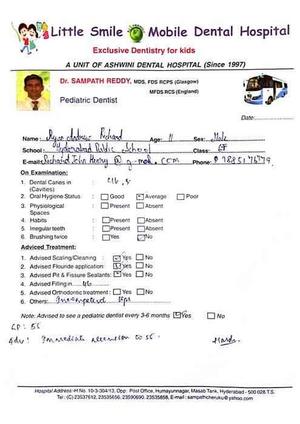 Little Smile Mobile Dental Hospital
Exclusive Dentistry for kids
A UNIT OF ASHWINI DENTAL HOSPITAL (Since 1997)
Dr. SAMPATH REDDY, MDS, FDS RCPS (Glasgow)
MFDS RCS (England)
Pediatric Dentist
Date:
Name: Richard Age: 11 Sex: Male
School: Hyderabad Public School Class: 6F
E-mail: Phone:
On Examination:
1. Dental Caries in (Cavities)
2. Oral Hygiene Status : Good Average Poor
3. Physiological Spaces : Present Absent
4. Habits : Present Absent
5. Irregular teeth : Present Absent
6. Brushing twice : Yes No
Adviced Treatment:
1. Advised Scaling/Cleaning : Yes No
2. Advised Flouride application : Yes No
3. Advised Pit & Fissure Sealants : Yes No
4. Advised Filling in
5. Advised Orthodontic treatment : Yes No
6. Others: Incompetent lips
Note: Advised to see a pediatric dentist every 3-6 months Yes No
Adv: Immediate attention to 55.
Hospital Address: H No. 10-3-304/13, Opp. Post Office, Humayunnagar, Masab Tank, Hyderabad - 500 028 T.S.
Tel: (C) 23537612, 23535656, 23590690, 23535858, E-mail: sampathcheruku@yahoo.com